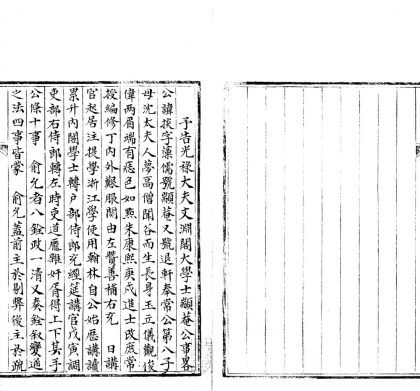 予告光祿大夫文淵閣大學士顓菴公事畧
公諱掞字藻儒號顓菴又號退軒奉常公第八子
母沈太夫人夢高僧聞谷而生長身玉立儀觀俊
偉兩眉端有痣色如㸃朱康熙庚戌進士改庶常
授編修丁內外艱服闋由左贊善補右充 日講
官起居注提學浙江學使用翰林自公始歷講讀
累升內閣學士轉戶部侍郎充經筵講官戊寅調
吏部右侍郎轉左時吏道龎雜奸胥得上下其手
公條十事 俞允者八銓政一清又奏銓叙變通
之法四事皆蒙 俞允蓋前主於剔弊後主於疏